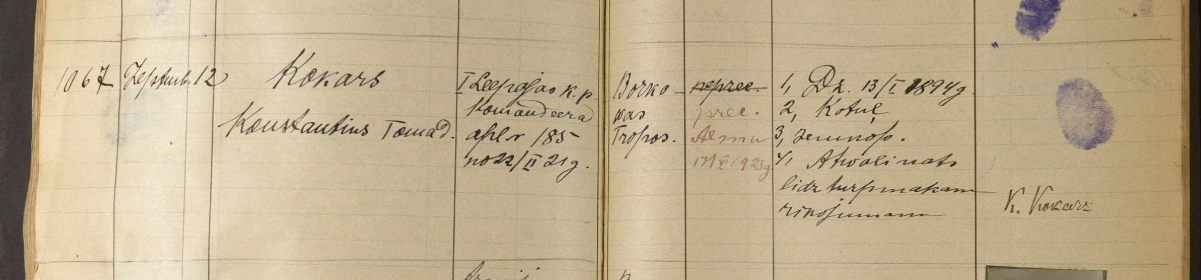 1067 Septemb. 12
Kokars
Konstantins Tomad.
I Leepajas k. p.
Komandeera
apl. № 185
no 22/II 21g.
Borko-
vas
Tropos.
neprec.
prec.
Alma
17/VI 1923g
1, Dz. 13/I 1894g.
2, Kotuļ
3, zemkop.
4, Atvalinats
lidz turpmakam
rikojumam
K. Kokars